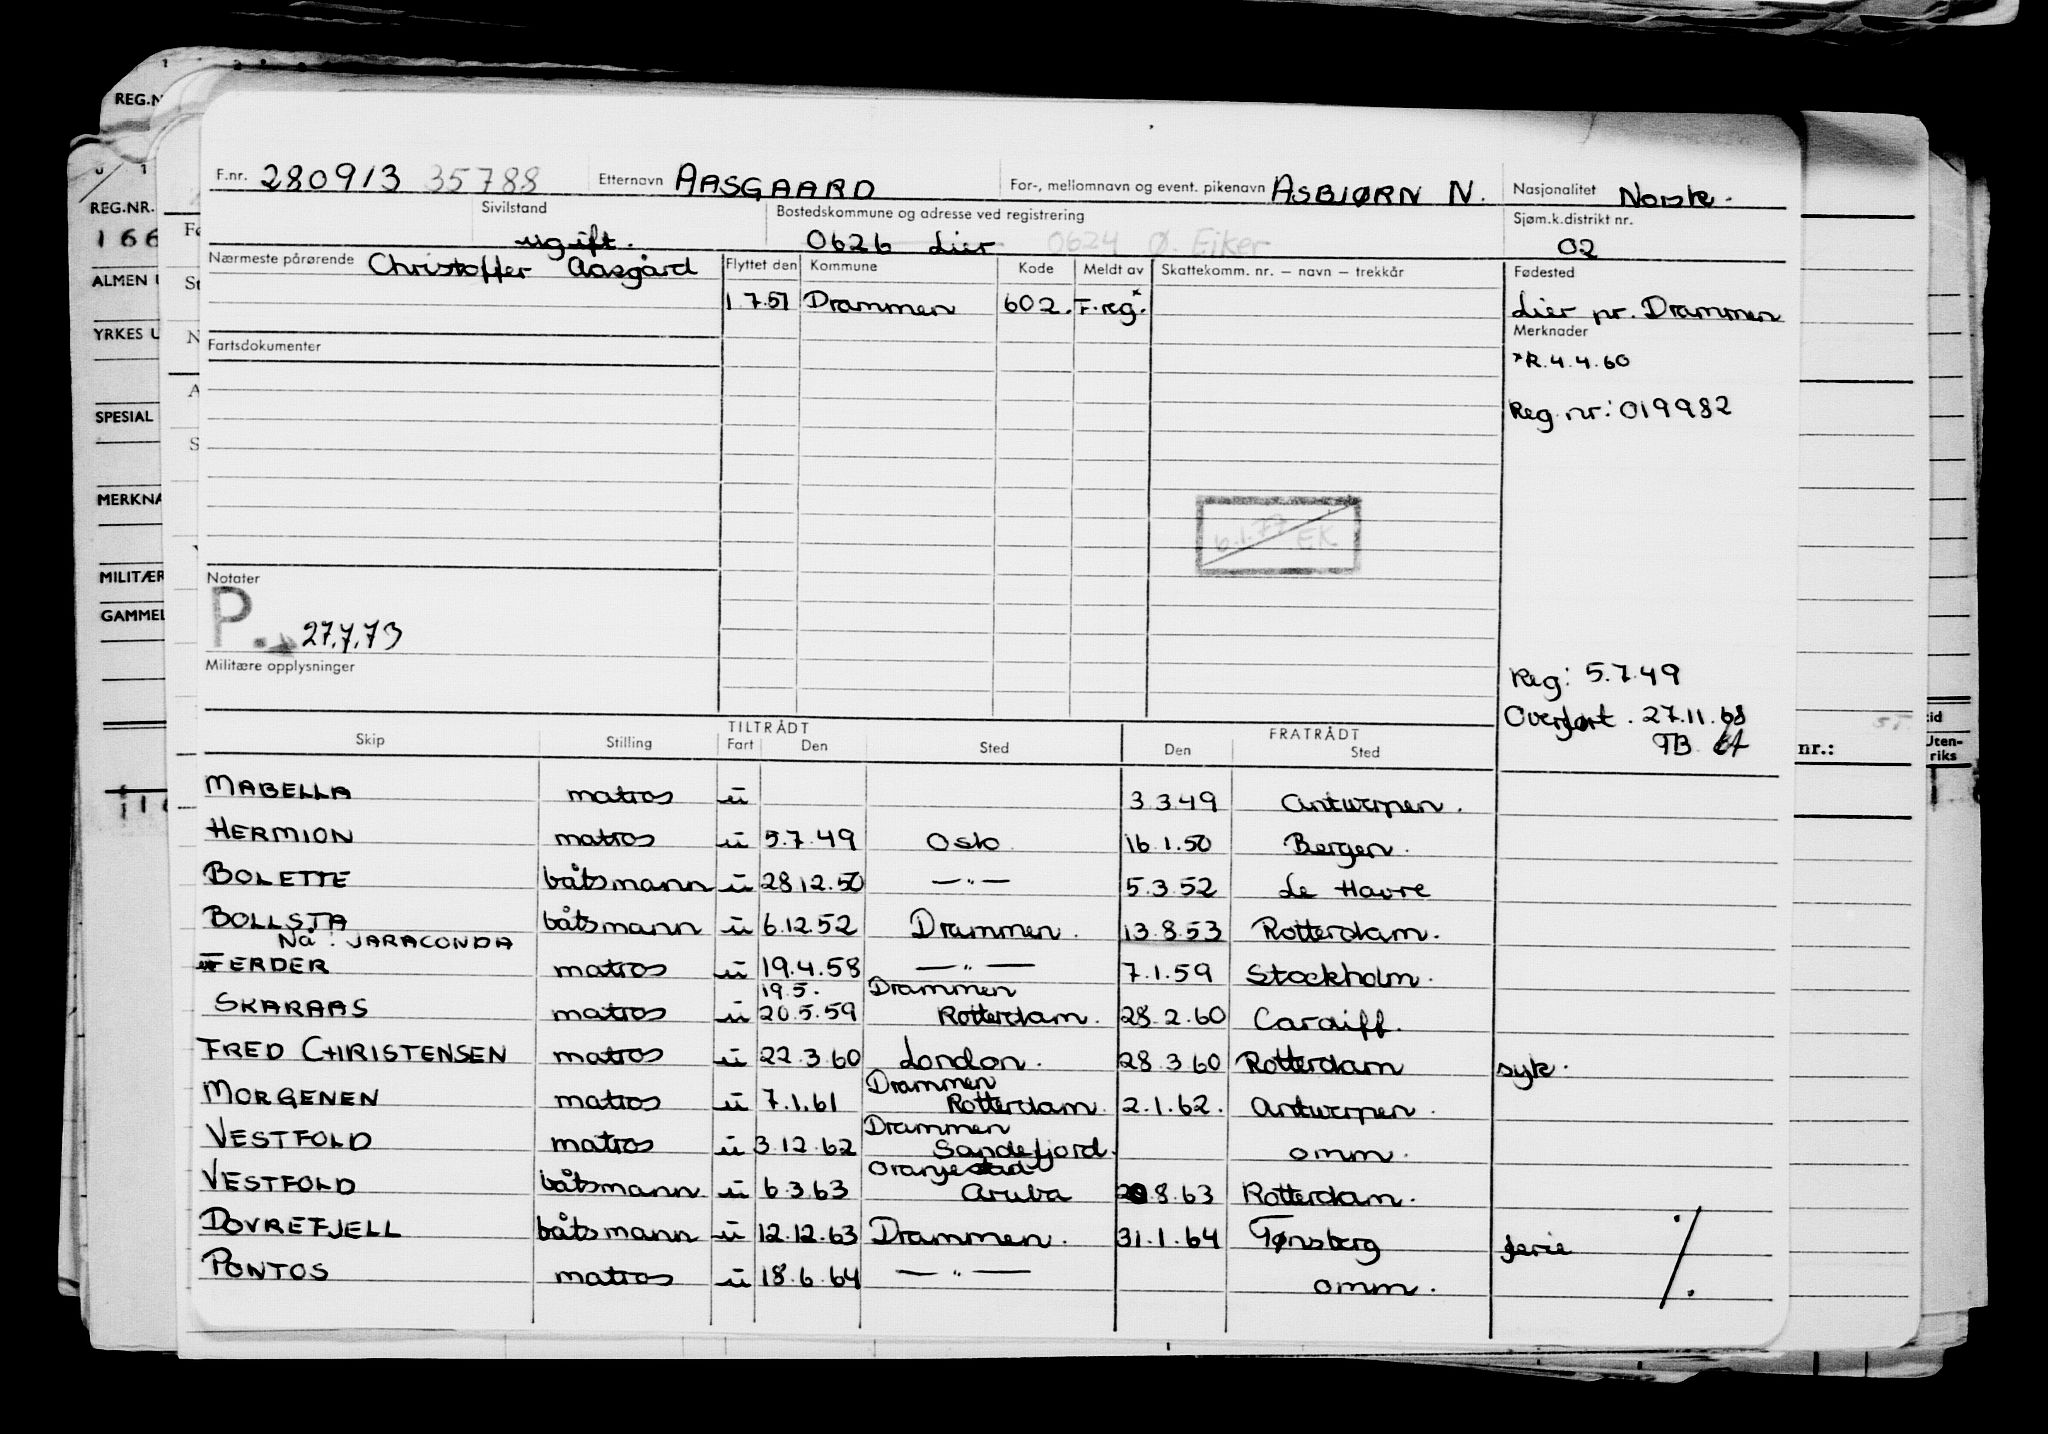 REG.N
REG.NR.
166
ALMEN U
YRKES U
SPESIAL
MERKNA
MILITÆR
GAMMEL
F.nr. 280913 35788 Etternavn AASGAARD For-, mellomnavn og event. pikenavn ASBJØRN N. Nasjonalitet Norsk.
Sivilstand Bostedskommune og adresse ved registrering Sjøm.k.distrikt nr.
ugift. 0626 Lier 0624 Ø. Eiker 02
Nærmeste pårørende Christoffer Aasgård Flyttet den Kommune Kode Meldt av Skattekomm. nr. – navn – trekkår Fødested
1.7.51 Drammen 602. F.reg.* Lier pr. Drammen
Merknader
Fartsdokumenter
*R.4.4.60
Reg.nr: 019982
6.1.77 EK
Notater
P. 27.7.73
Militære opplysninger
Reg: 5.7.49
Overført. 27.11.68
TB
TILTRÅDT FRATRÅDT
Skip Stilling Fart Den Sted Den Sted
MABELLA matros u 3.3.49 Antwerpen.
HERMION matros u 5.7.49 Oslo 16.1.50 Bergen.
BOLETTE båtsmann u 28.12.50 —"— 5.3.52 Le Havre
BOLLSTA båtsmann u 6.12.52 Drammen. 13.8.53 Rotterdam.
Nå: JARACONDA
FERDER matros u 19.4.58 —"— 7.1.59 Stockholm.
19.5. Drammen
SKARAAS matros u 20.5.59 Rotterdam. 28.2.60 Cardiff.
FRED CHRISTENSEN matros u 22.3.60 London. 28.3.60 Rotterdam syk.
Drammen
MORGENEN matros u 7.1.61 Rotterdam. 2.1.62. Antwerpen.
Drammen
VESTFOLD matros u 3.12.62 Sandefjord. omm.
Oranjestad
VESTFOLD båtsmann u 6.3.63 Aruba 20.8.63 Rotterdam.
DOVREFJELL båtsmann u 12.12.63 Drammen. 31.1.64 Tønsberg ferie
PONTOS matros u 18.6.64 —"— omm.
nr.:
tid
Uten-
riks